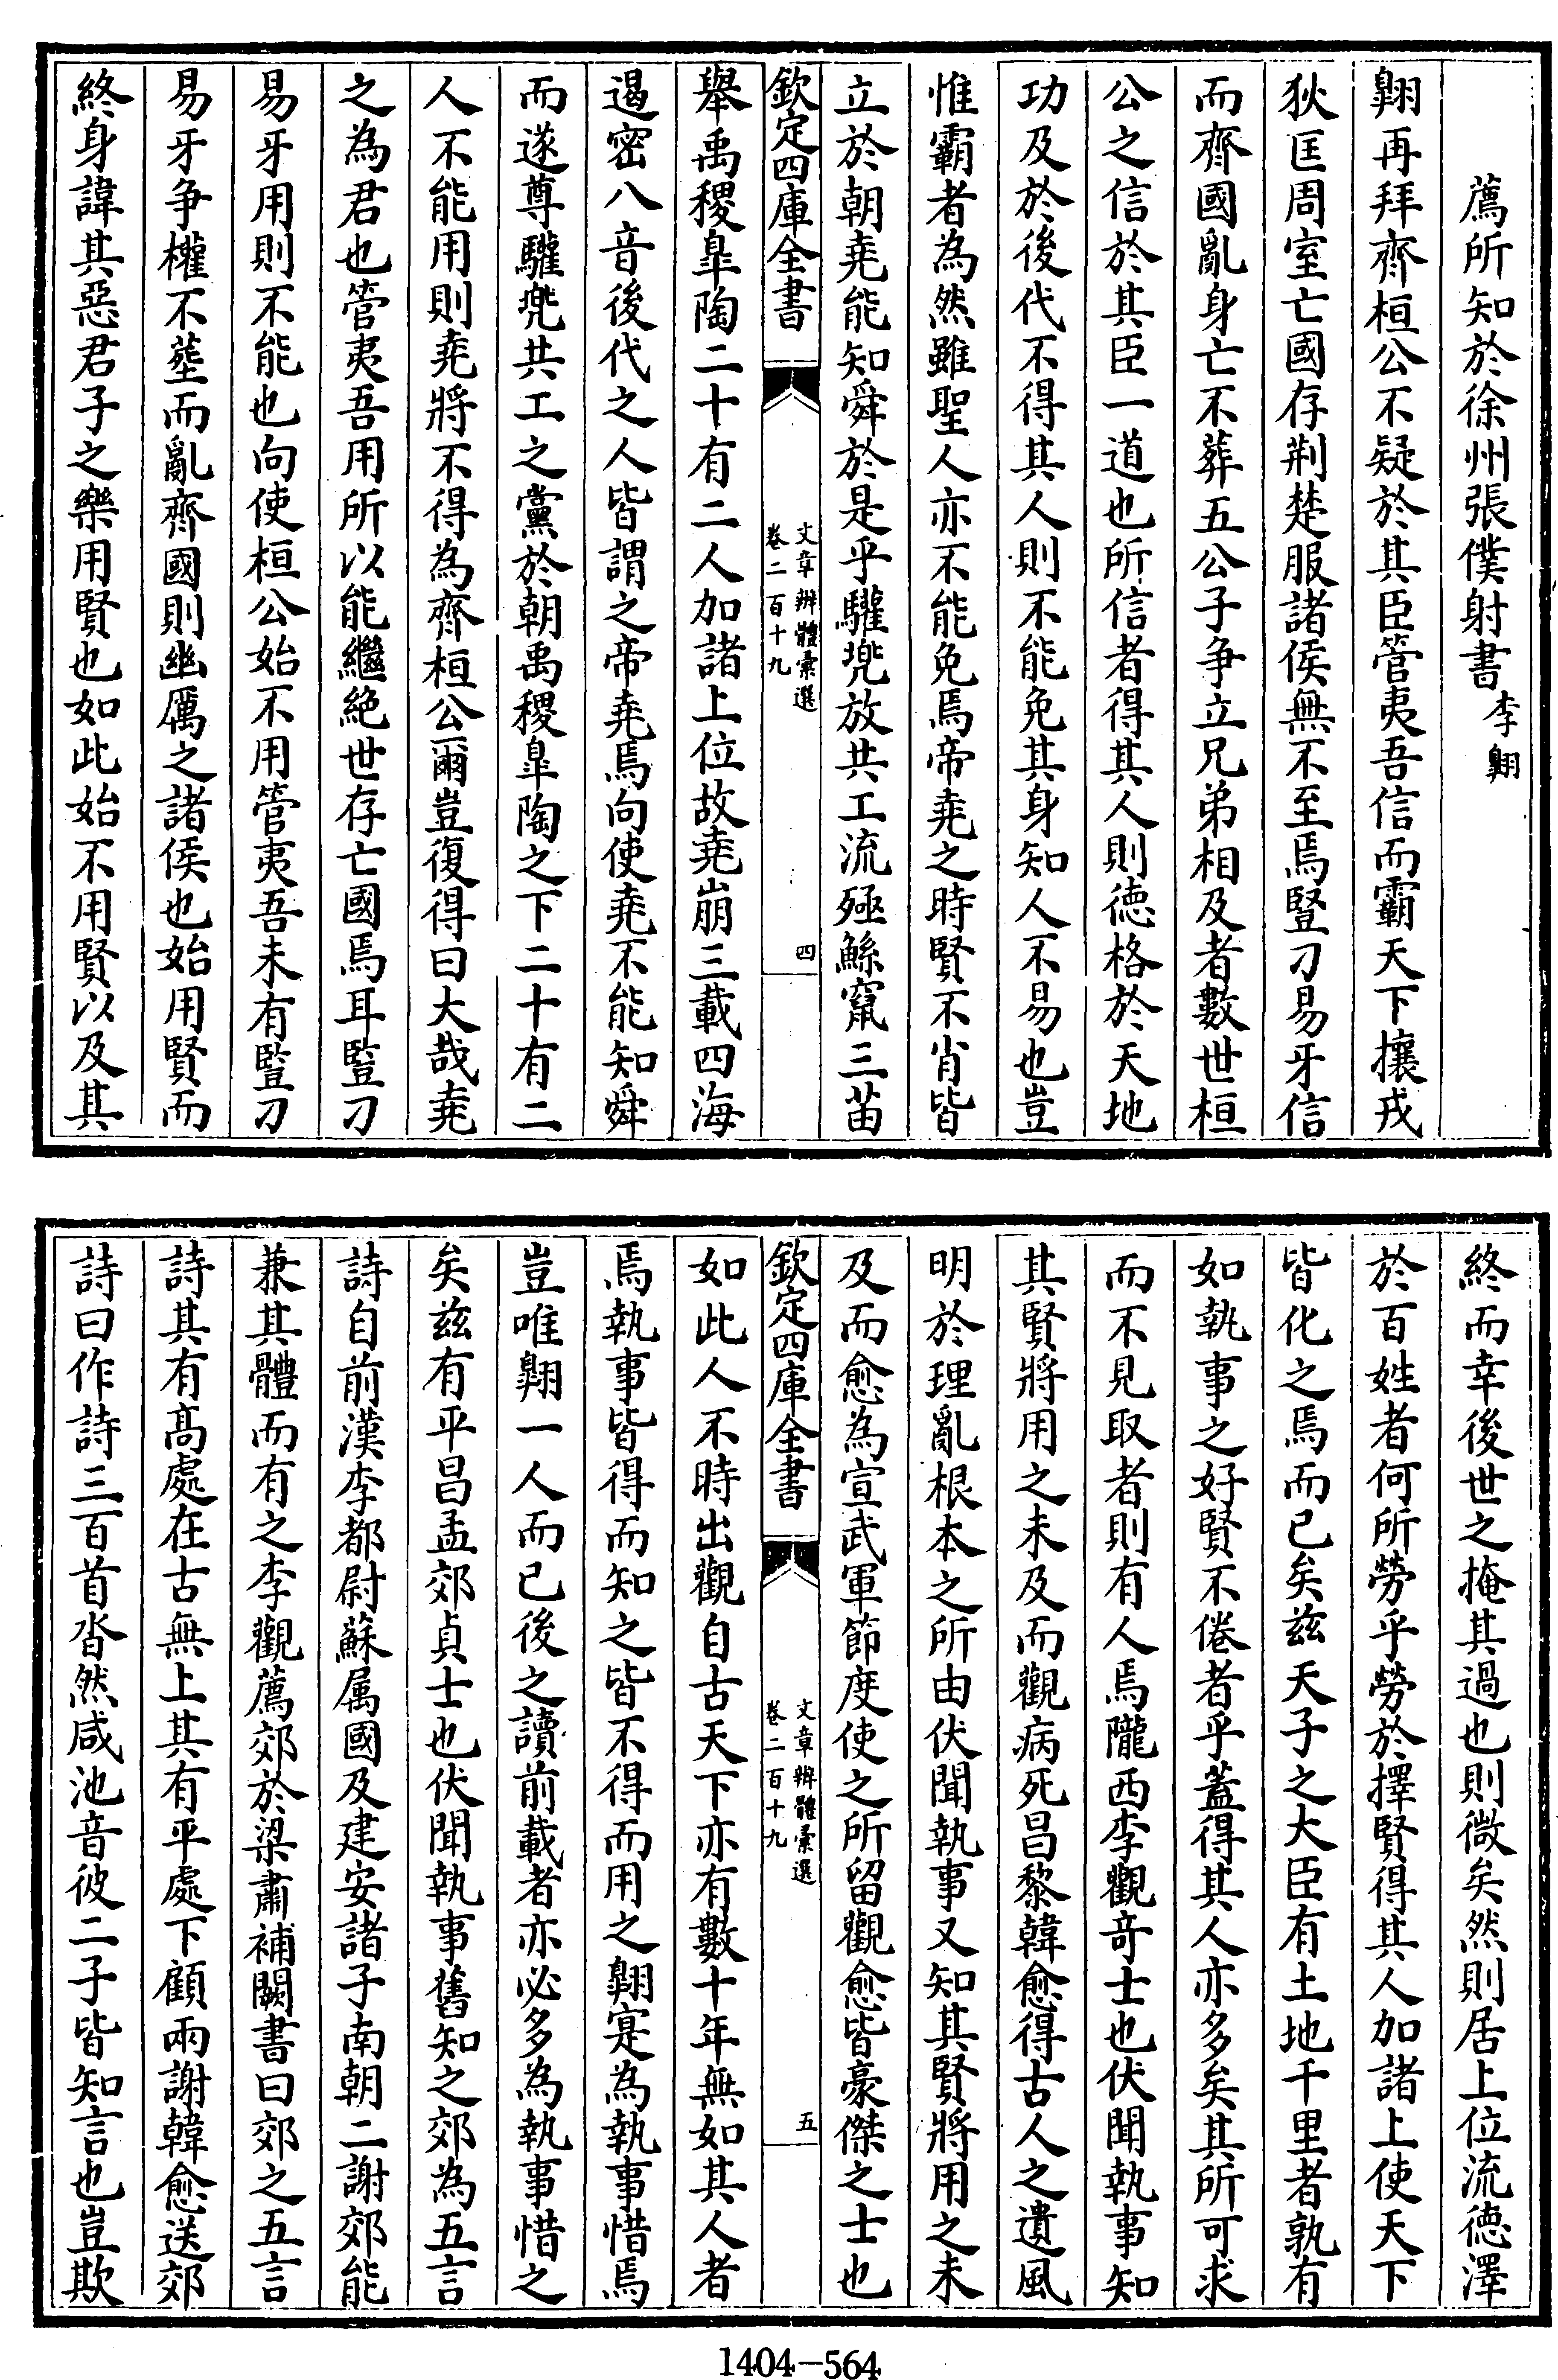 薦所知於徐州張僕射書 李翺
翺再拜齊桓公不疑於其臣管夷吾信而霸天下攘戎
狄匡周室亡國存荆楚服諸侯無不至焉豎刁易牙信
而齊國亂身亡不葬五公子争立兄弟相及者數世桓
公之信於其臣一道也所信者得其人則徳格於天地
功及於後代不得其人則不能免其身知人不易也豈
惟霸者為然雖聖人亦不能免焉帝堯之時賢不肖皆
立於朝堯能知舜於是乎驩兜放共工流殛鯀竄三苗
欽定四庫全書
文章辨體彚選
卷二百十九
四
舉禹稷臯陶二十有二人加諸上位故堯崩三載四海
遏密八音後代之人皆謂之帝堯焉向使堯不能知舜
而遂尊驩兜共工之黨於朝禹稷臯陶之下二十有二
人不能用則堯將不得為齊桓公爾豈復得曰大哉堯
之為君也管夷吾用所以能繼絶世存亡國焉耳豎刁
易牙用則不能也向使桓公始不用管夷吾未有豎刁
易牙争權不塟而亂齊國則幽厲之諸侯也始用賢而
終身諱其惡君子之樂用賢也如此始不用賢以及其
終而幸後世之掩其過也則微矣然則居上位流徳澤
於百姓者何所勞乎勞於擇賢得其人加諸上使天下
皆化之焉而已矣兹天子之大臣有土地千里者孰有
如執事之好賢不倦者乎蓋得其人亦多矣其所可求
而不見取者則有人焉隴西李觀奇士也伏聞執事知
其賢將用之未及而觀病死昌黎韓愈得古人之遺風
明於理亂根本之所由伏聞執事又知其賢將用之未
及而愈為宣武軍節度使之所留觀愈皆豪傑之士也
欽定四庫全書
文章辨體彚選
卷二百十九
五
如此人不時出觀自古天下亦有數十年無如其人者
焉執事皆得而知之皆不得而用之翺寔為執事惜焉
豈唯翺一人而已後之讀前載者亦必多為執事惜之
矣兹有平昌孟郊貞士也伏聞執事舊知之郊為五言
詩自前漢李都尉蘇属國及建安諸子南朝二謝郊能
兼其體而有之李觀薦郊於梁肅補闕書曰郊之五言
詩其有髙處在古無上其有平處下顧兩謝韓愈送郊
詩曰作詩三百首杳然咸池音彼二子皆知言也豈欺
1404-564